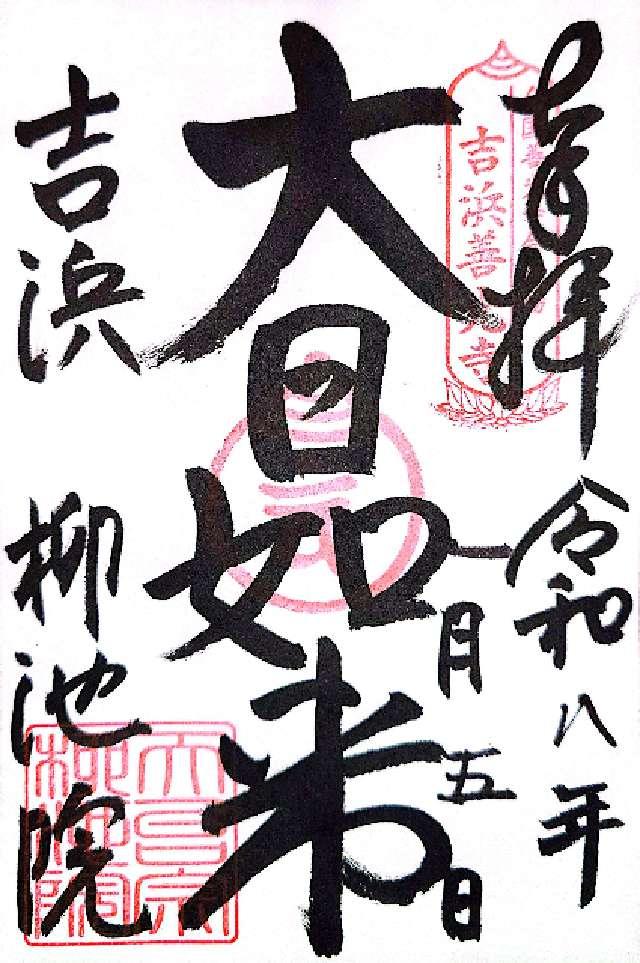 奉拝
令和八年
一月五日
吉浜善光寺
大日如来
吉浜
柳池院
天台宗
柳池院